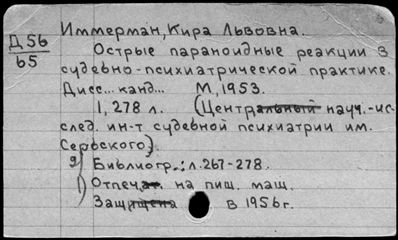 Иммерман, Кира Львовна.
Д 56
65
Острые параноидные реакции в
судебно-психиатрической практике.
Дисс... канд... М, 1953.
1, 278 л. (Центральный науч.-ис-
след. ин-т судебной психиатрии им.
Сербского).
2) Библиогр.: л. 267-278.
1) Отпечат. на пиш. маш.
Защищена в 1956 г.